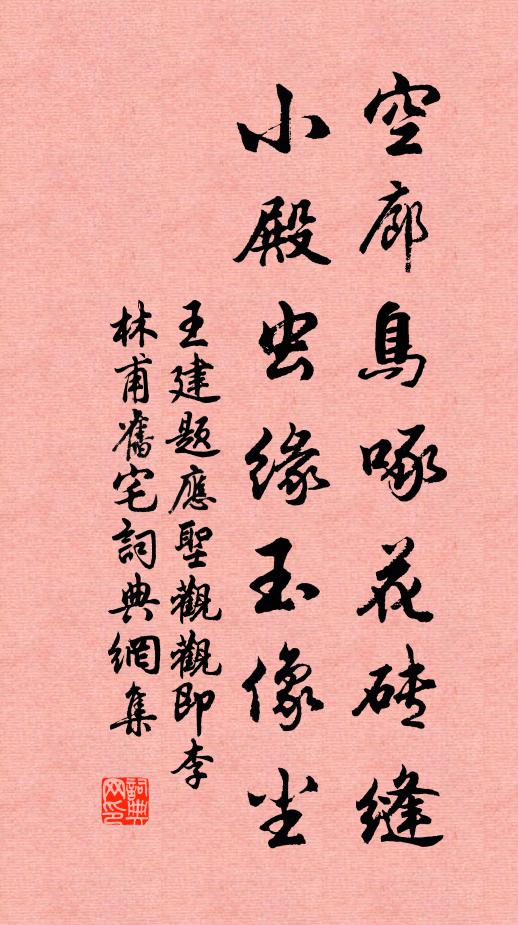 空廊鳥啄花砖縫
小殿虫緣玉像尘
王建題應聖觀觀即李
林甫舊宅詞典網集
詞典
网印